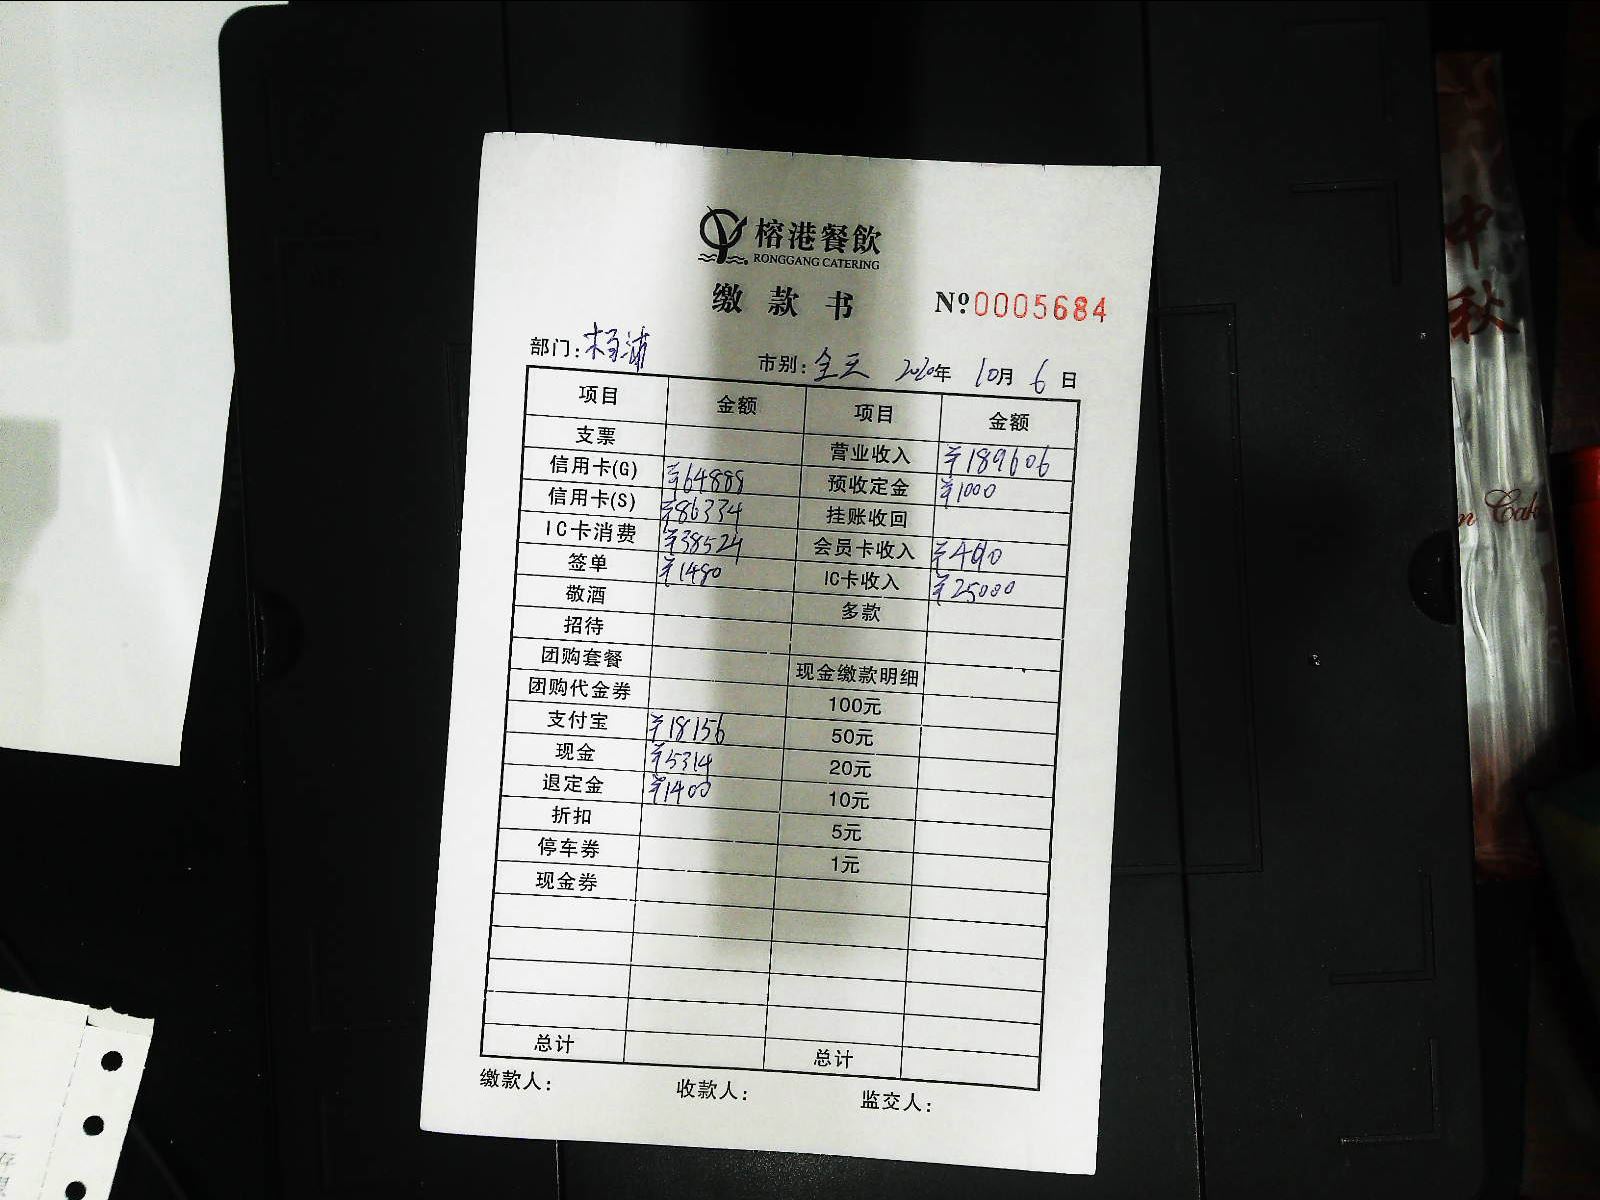 榕港餐飲
RONGGANG CATERING
缴款书 №0005684
部门: 杨浦 市别: 全天 2020年 10月 6日
项目 金额 项目 金额
支票 营业收入 ¥189606
信用卡(G) ¥64888 预收定金 ¥1000
信用卡(S) ¥86334 挂账收回
IC卡消费 ¥38524 会员卡收入 ¥490
签单 ¥1480 IC卡收入 ¥25000
敬酒 多款
招待
团购套餐 现金缴款明细
团购代金券 100元
支付宝 ¥18156 50元
现金 ¥5314 20元
退定金 ¥1400 10元
折扣 5元
停车券 1元
现金券
总计 总计
缴款人: 收款人: 监交人:
中
秋